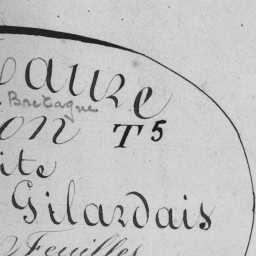 aure
Bretagne
on T5
ite
Gilardais
Feuilles